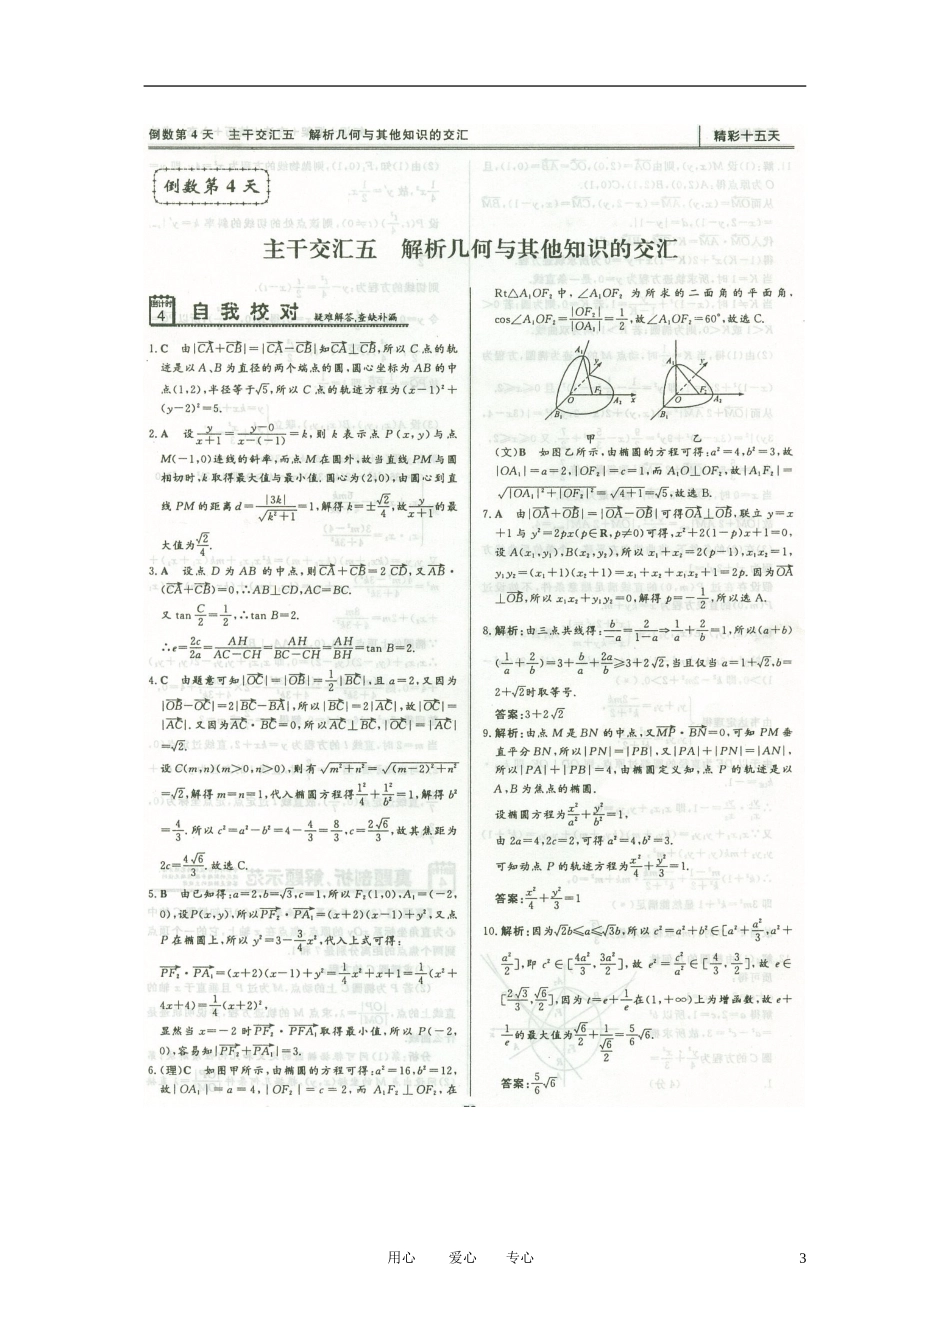 倒数第4天　主干交汇五　解析几何与其他知识的交汇
精彩十五天
倒数第4天
主干交汇五　解析几何与其他知识的交汇
倒计时4 自我校对 疑难解答,查缺补漏
1.C　由|CA+CB|=|CA-CB|知CA⊥CB,所以C点的轨
迹是以A、B为直径的两个端点的圆,圆心坐标为AB的中
点(1,2),半径等于√5,所以C点的轨迹方程为(x-1)²+
(y-2)²=5.
2.A　设y/(x+1)=(y-0)/(x-(-1))=k,则k表示点P(x,y)与点
M(-1,0)连线的斜率,而点M在圆外,故当直线PM与圆
相切时,k取得最大值与最小值.圆心为(2,0),由圆心到直
线PM的距离d=|3k|/√(k²+1)=1,解得k=±√2/4,故y/(x+1)的最
大值为√2/4.
3.A　设点D为AB的中点,则CA+CB=2CD,又AB·
(CA+CB)=0,∴AB⊥CD,AC=BC.
又tan C/2=1/2,∴tan B=2.
∴e=2c/2a=AH/(AC-CH)=AH/(BC-CH)=AH/BH=tan B=2.
4.C　由题意可知|OC|=|OB|=1/2|BC|,且a=2,又因为
|OB-OC|=2|BC-BA|,所以|BC|=2|AC|,故|OC|=
|AC|.又因为AC·BC=0,所以AC⊥BC,|OC|=|AC|
=√2.
设C(m,n)(m>0,n>0),则有√(m²+n²)=√((m-2)²+n²)
=√2,解得m=n=1,代入椭圆方程得1²/4+1²/b²=1,解得b²
=4/3.所以c²=a²-b²=4-4/3=8/3,c=2√6/3,故其焦距为
2c=4√6/3.故选C.
5.B　由已知得:a=2,b=√3,c=1,所以F₂(1,0),A₁=(-2,
0),设P(x,y),所以PF₂·PA₁=(x+2)(x-1)+y²,又点
P在椭圆上,所以y²=3-3/4x²,代入上式可得:
PF₂·PA₁=(x+2)(x-1)+y²=1/4x²+x+1=1/4(x²+
4x+4)=1/4(x+2)²,
显然当x=-2时PF₂·PFA₁取得最小值,所以P(-2,
0),容易知|PF₂+PA₁|=3.
6.(理)C　如图甲所示,由椭圆的方程可得:a²=16,b²=12,
故|OA₁|=a=4,|OF₂|=c=2,而A₁F₂⊥OF₂,在
Rt△A₁OF₂中,∠A₁OF₂为所求的二面角的平面角,
cos∠A₁OF₂=|OF₂|/|OA₁|=1/2,故∠A₁OF₂=60°,故选C.
A₁ y O F₁ A₂ x B₁
A₁ y O F₂ A₂ B₁
甲　乙
(文)B　如图乙所示,由椭圆的方程可得:a²=4,b²=3,故
|OA₁|=a=2,|OF₂|=c=1,而A₁O⊥OF₂,故|A₁F₂|=
√(|OA₁|²+|OF₂|²)=√(4+1)=√5,故选B.
7.A　由|OA+OB|=|OA-OB|可得OA⊥OB,联立y=x
+1与y²=2px(p∈R,p≠0)可得,x²+2(1-p)x+1=0,
设A(x₁,y₁),B(x₂,y₂),所以x₁+x₂=2(p-1),x₁x₂=1,
y₁y₂=(x₁+1)(x₂+1)=x₁+x₂+x₁x₂+1=2p.因为OA
⊥OB,所以x₁x₂+y₁y₂=0,解得p=-1/2,所以选A.
8.解析:由三点共线得:b/-a=2/(1-a)⇒1/a+2/b=1,所以(a+b)
(1/a+2/b)=3+b/a+2a/b≥3+2√2,当且仅当a=1+√2,b=
2+√2时取等号.
答案:3+2√2
9.解析:由点M是BN的中点,又MP·BN=0,可知PM垂
直平分BN,所以|PN|=|PB|,又|PA|+|PN|=|AN|,
所以|PA|+|PB|=4,由椭圆定义知,点P的轨迹是以
A,B为焦点的椭圆.
设椭圆方程为x²/a²+y²/b²=1,
由2a=4,2c=2,可得a²=4,b²=3.
可知动点P的轨迹方程为x²/4+y²/3=1.
答案:x²/4+y²/3=1
10.解析:因为√2b≤a≤√3b,所以c²=a²+b²∈[a²+a²/3,a²+
a²/2],即c²∈[4a²/3,3a²/2],故e²=c²/a²∈[4/3,3/2],故e∈
[2√3/3,√6/2],因为t=e+1/e在(1,+∞)上为增函数,故e+
1/e的最大值为√6/2+1/(√6/2)=5/6√6.
答案:5/6√6
用心　爱心　专心
3